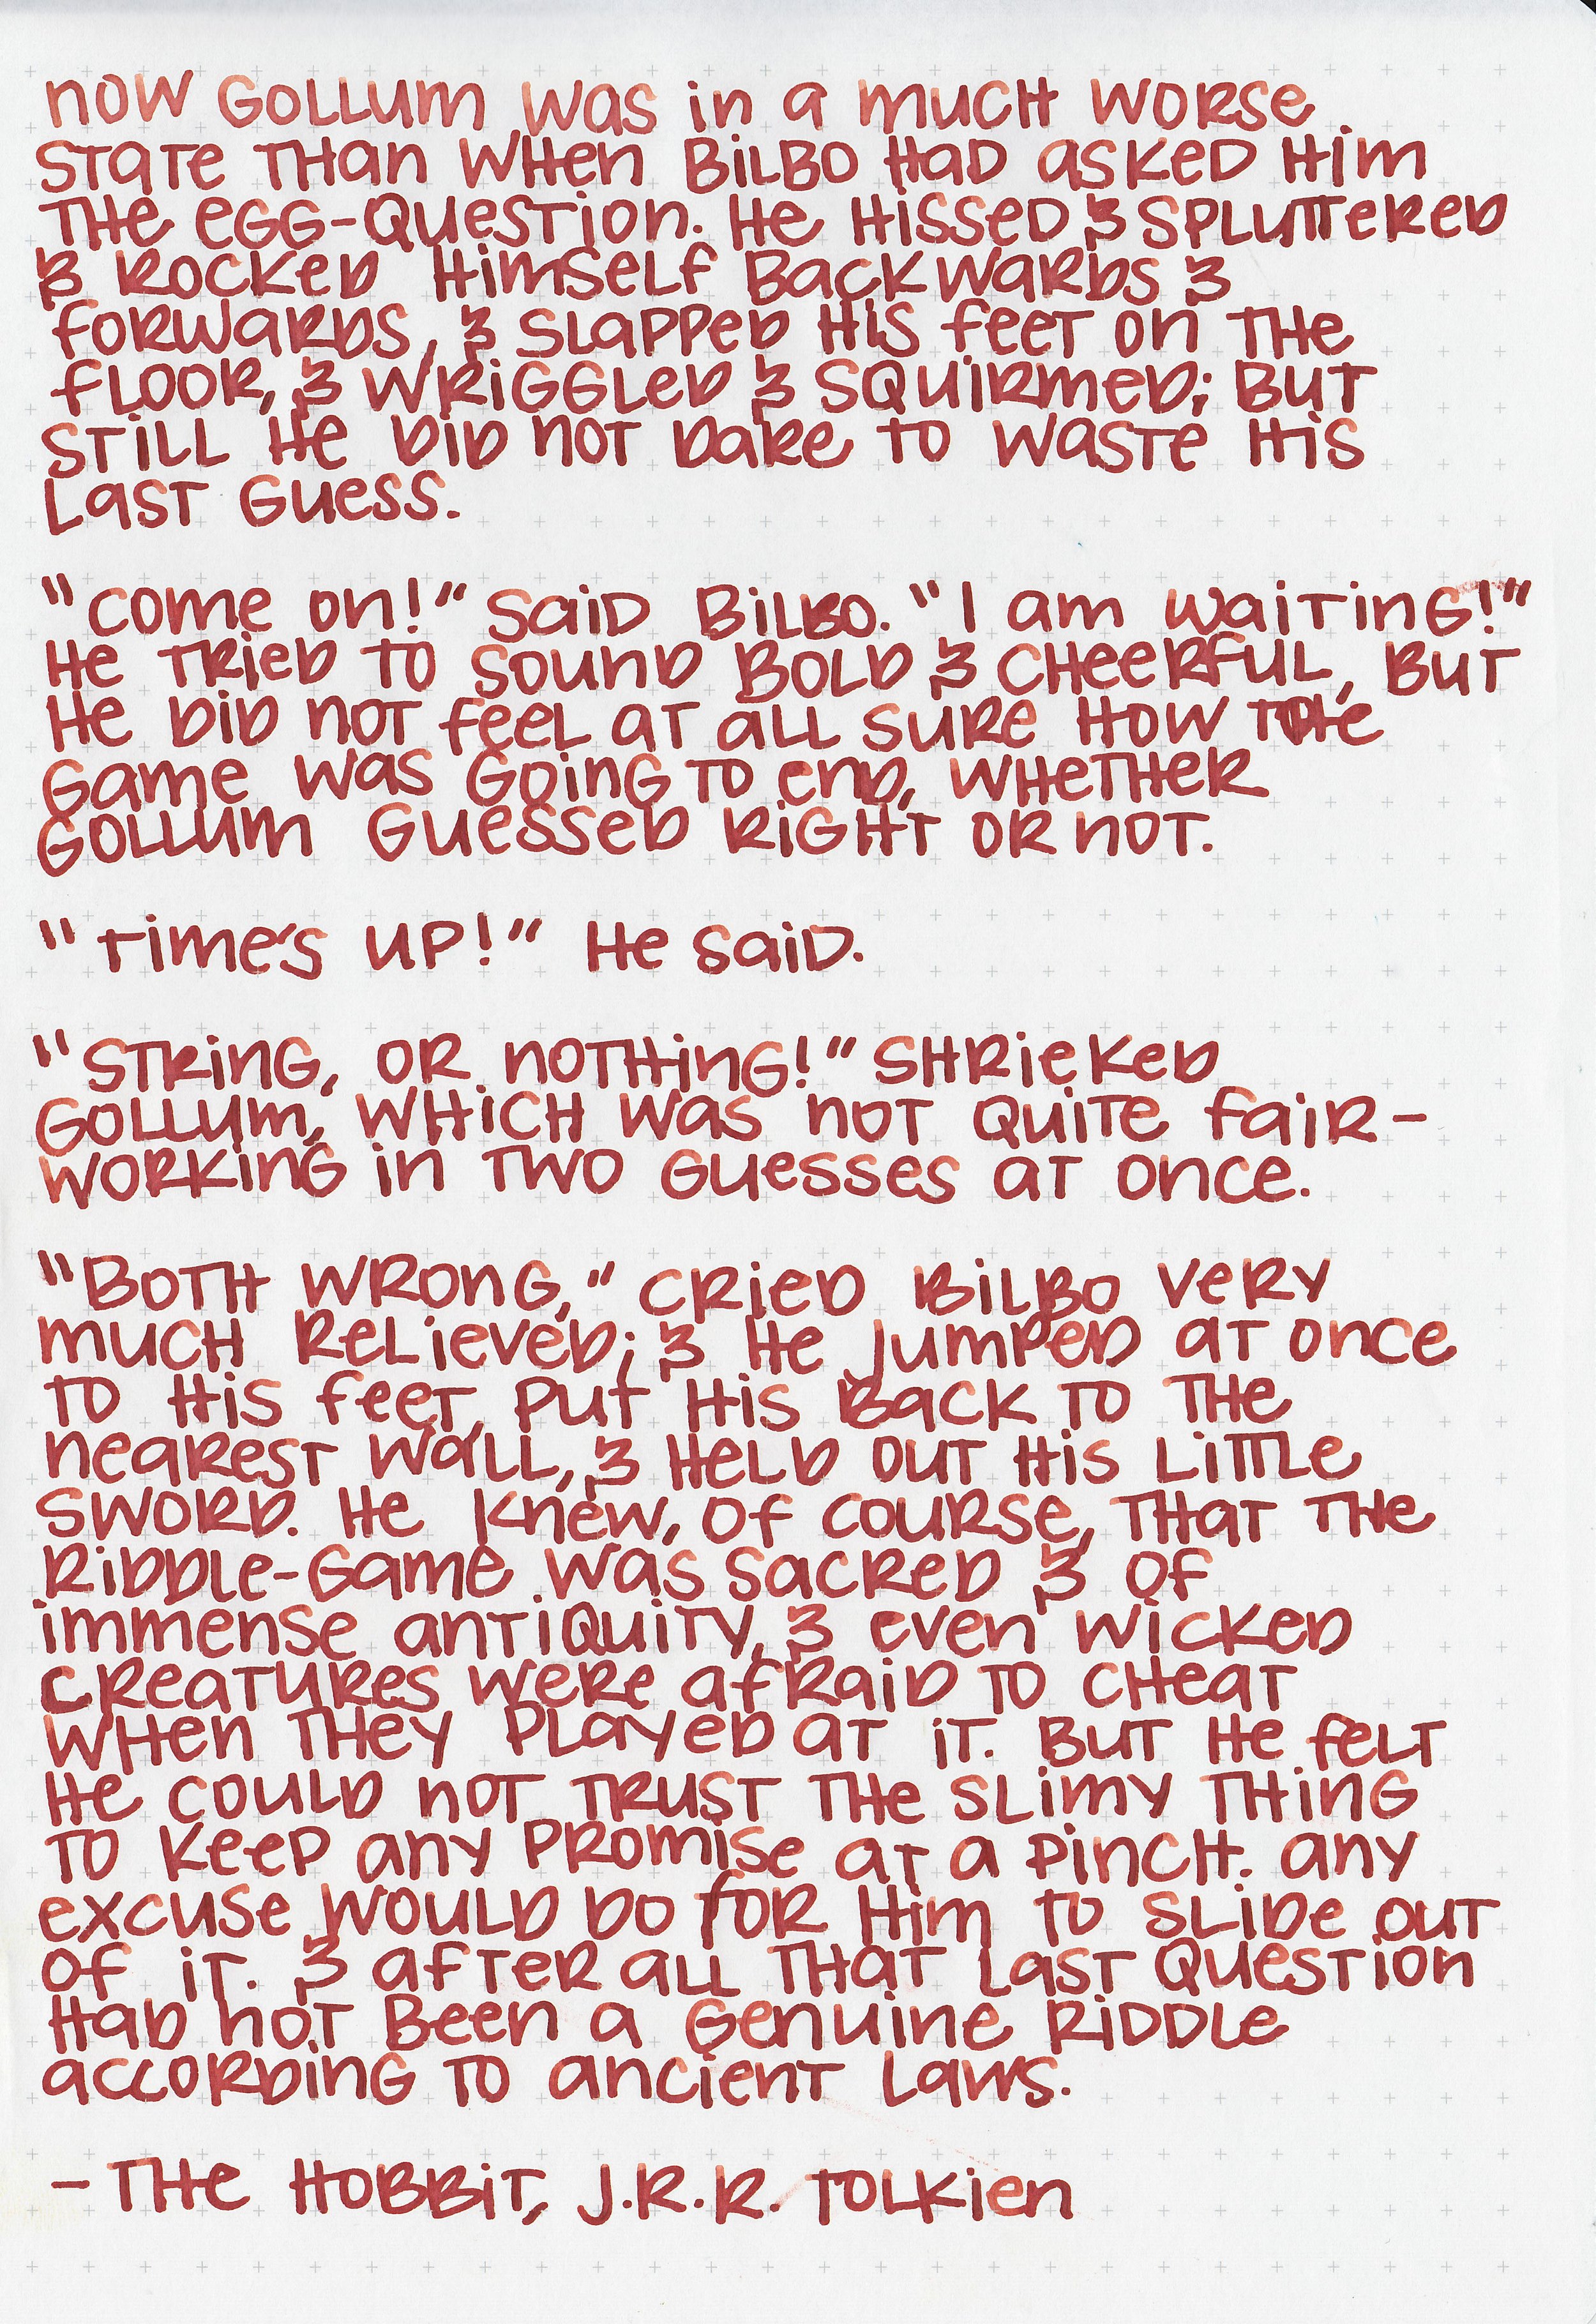 now Gollum was in a much worse
state than when Bilbo had asked him
the egg-question. He hissed & spluttered
& rocked himself backwards &
forwards, & slapped his feet on the
floor, & wriggled & squirmed; but
still he did not dare to waste his
last guess.
"Come on!" said Bilbo. "I am waiting!"
He tried to sound bold & cheerful, but
he did not feel at all sure how the
game was going to end, whether
Gollum guessed right or not.
"Time's up!" he said.
"String, or nothing!" shrieked
Gollum, which was not quite fair-
working in two guesses at once.
"Both wrong," cried Bilbo very
much relieved; & he jumped at once
to his feet, put his back to the
nearest wall, & held out his little
sword. He knew, of course, that the
riddle-game was sacred & of
immense antiquity, & even wicked
creatures were afraid to cheat
when they played at it. But he felt
he could not trust the slimy thing
to keep any promise at a pinch. Any
excuse would do for him to slide out
of it. & after all that last question
had not been a genuine riddle
according to ancient laws.
- The Hobbit, J.R.R. Tolkien